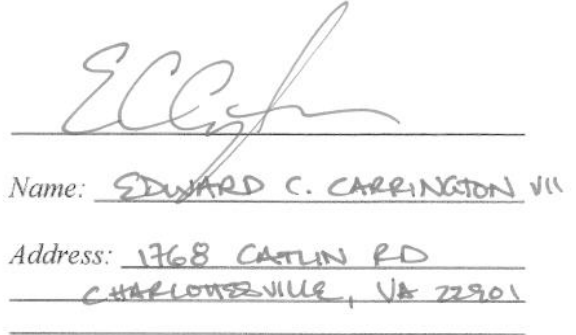 Name: EDWARD C. CARRINGTON VII
Address: 1768 CATLIN RD
CHARLOTTESVILLE, VA 22901